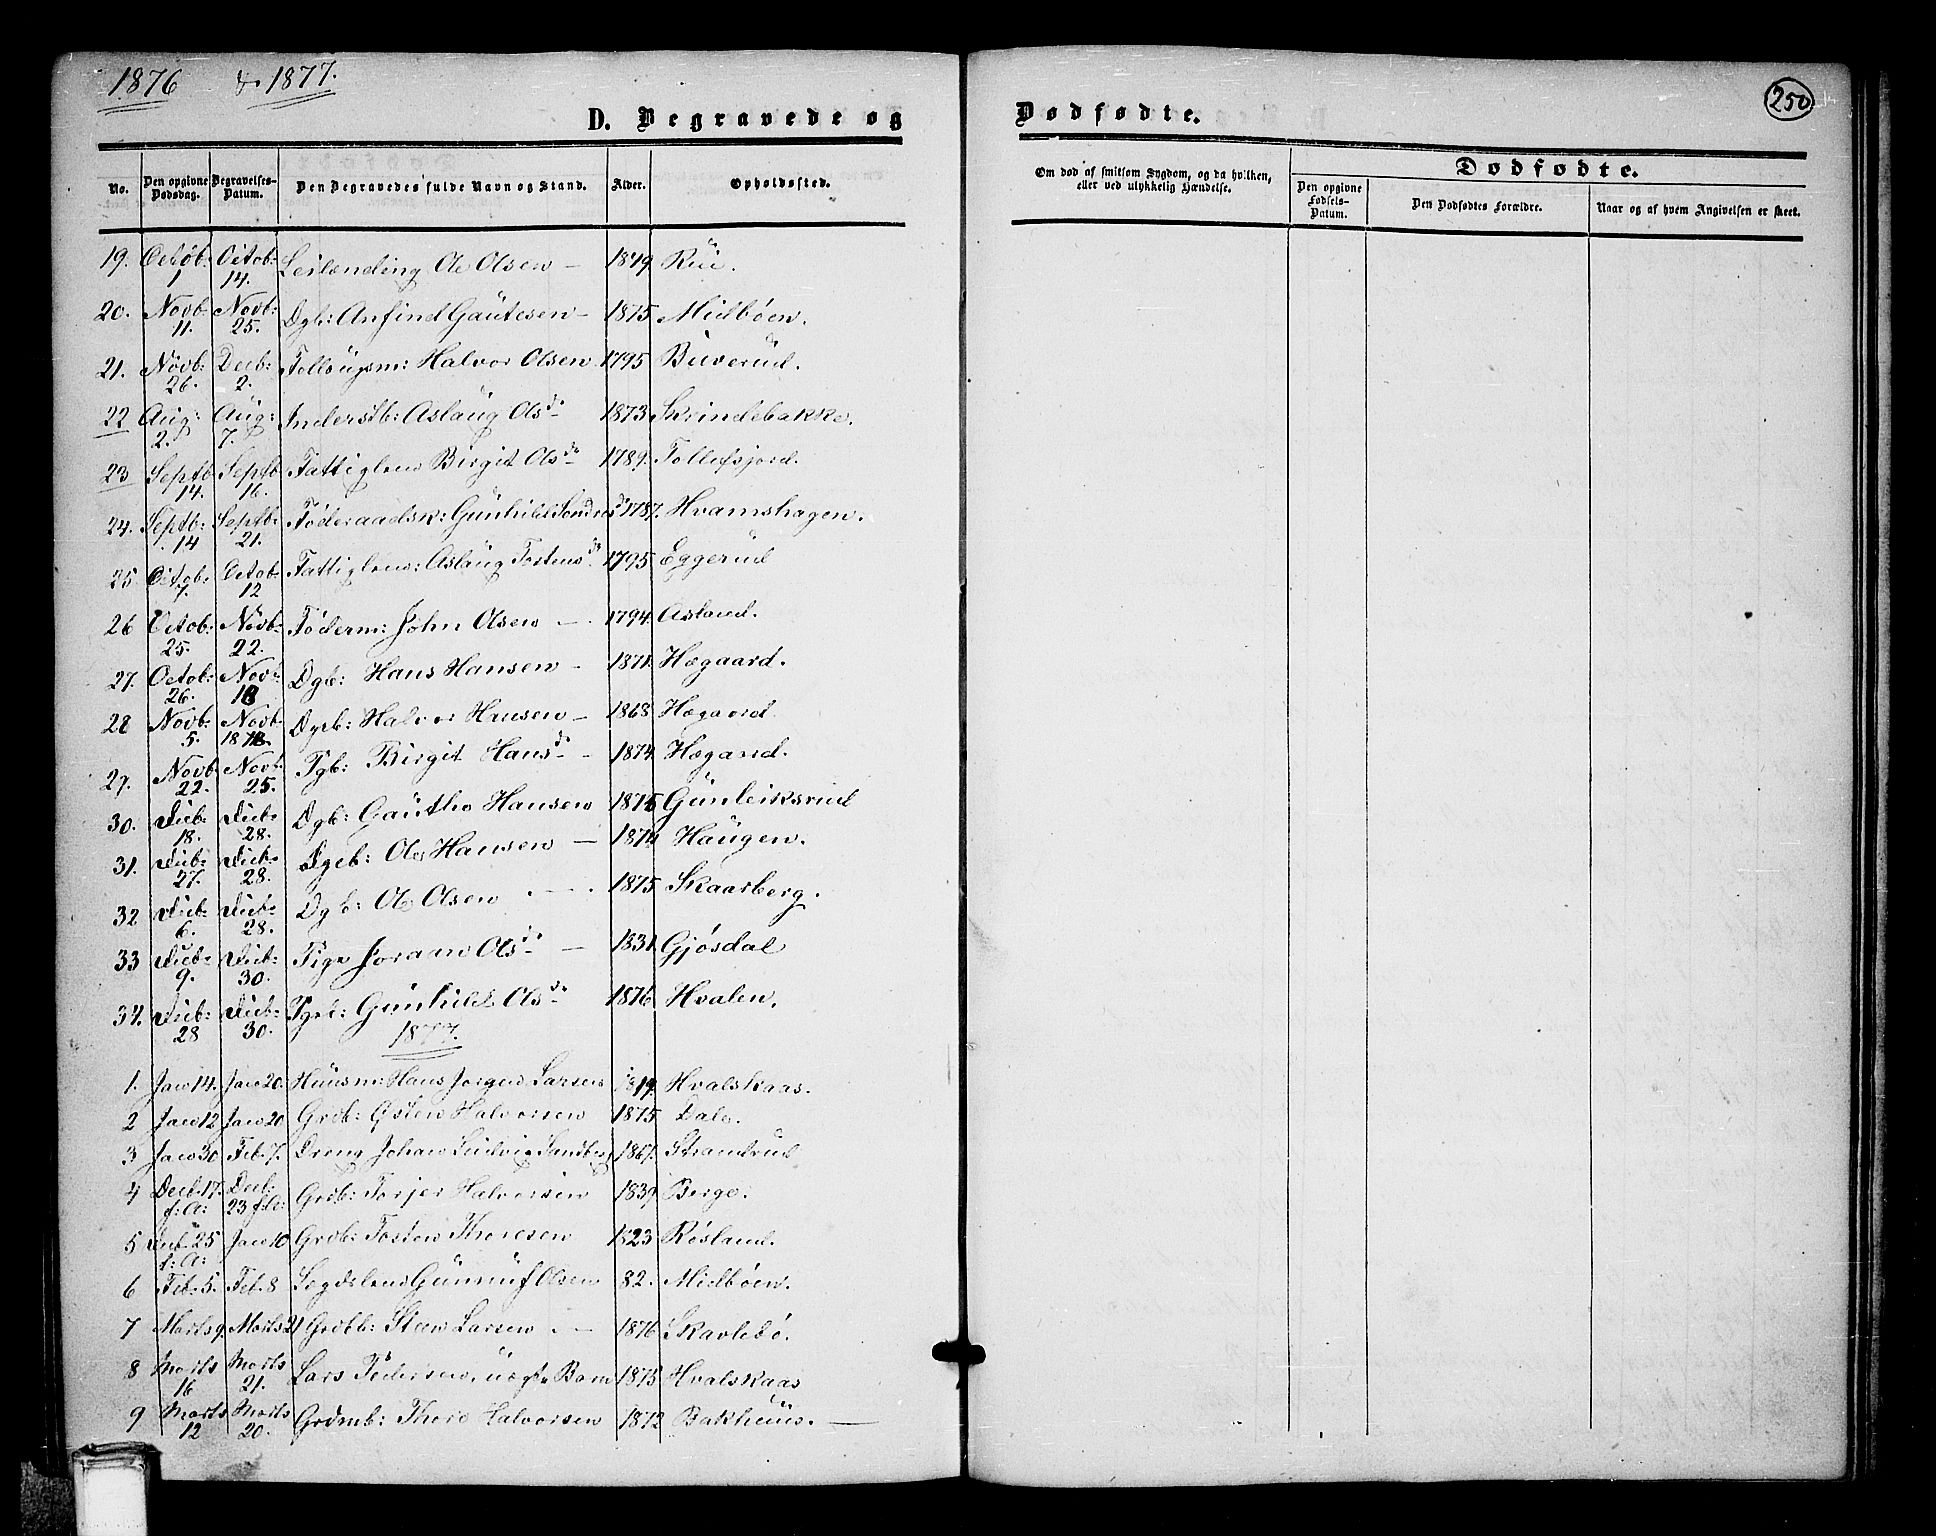 1876 & 1877.
250
D. Begravede og Dødfødte.
No. Den opgivne Dødsdag. Begravelses-Datum. Den Begravedes fulde Navn og Stand. Alder. Opholdssted.
Om død af smitsom Sygdom, og da hvilken, eller ved ulykkelig Hændelse.
Dødfødte.
Den opgivne Fødsels-Datum. Den Dødfødtes Forældre. Naar og af hvem Angivelsen er skeet.
19. Octob: 1 Octob: 14. Leilænding Ole Olsen — 1849 Rui.
20. Novb: 11. Novb: 25. Dgb: Anfind Gautesen — 1875 Midbøen.
21. Novb: 26. Decb: 2. Halvor Olsen 1795 Buverud.
22 Aug: 2. Aug: 7. Inderstb: Aslaug Olsd. 1873 Skrindebakke.
23 Septb: 14. Septb: 16. Fattiglem Birgit Olsd. 1789. Tollefsjord.
24. Septb: 14 Septb: 21. Føderaadsk: Gunhild Sondresd. 1787. Hvamshagen.
25. Octob: 7. Octob: 12 Fattiglem: Aslaug Tostensd. 1795 Eggerud
26 Octob: 25. Novb: 22. Føderm: John Olsen — 1794. Asland.
27. Octob: 26. Novb: 18 Dgb: Hans Hansen — 1871. Hægaard.
28 Novb: 5. Novb: 18 Dgb: Halvor Hansen — 1868 Hægaard.
29. Novb: 22. Novb: 25. Pgb: Birgit Hansd. — 1874. Hægaard.
30. Decb: 18. Decb: 28. Dgb: Gautho Hansen 1875 Gunleiksrud
31. Decb: 27. Decb: 28. Ole Hansen — 1874 Haugen.
32 Decb: 6. Decb: 28. Dgb: Ole Olsen — 1875 Skaarberg.
33 Decb: 9. Decb: 30. Pige Joraan Olsd. — 1831. Gjøsdal
34. Decb: 28 Decb: 30. Pgb: Gunhild Olsd. 1876 Hvalen.
1877.
1. Jan 14. Jan 20. Huusm: Hans Jørgen Larsen 1819. Hvalskaas.
2 Jan 12 Jan 20 Grdb: Østen Halvorsen 1875 Dale.
3 Jan 30 Feb. 7. Dreng Johan Ludvig Sandberg 1867. Strandrud
4 Decb. 17. f: A: Decb: 23 f: A: Grdb: Torjer Halvorsen 1839 Berge.
5 Decb 25 f: A: Jan 10 Grdb: Tosten Thoresen 1823 Røsland.
6 Feb. 5. Feb. 8 Lægdslem Gunnuf Olsen 82. Midbøen.
7 Marts 9. Marts 21 Grdbb: Steen Larsen — 1876 Skavlebø.
8 Marts 16 Marts 21. Lars Pedersen, uægte Barn 1873 Hvalskaas
9 Marts 12 Marts 20. Grdmb: Thore Halvorsen 1872 Bakhuus. —